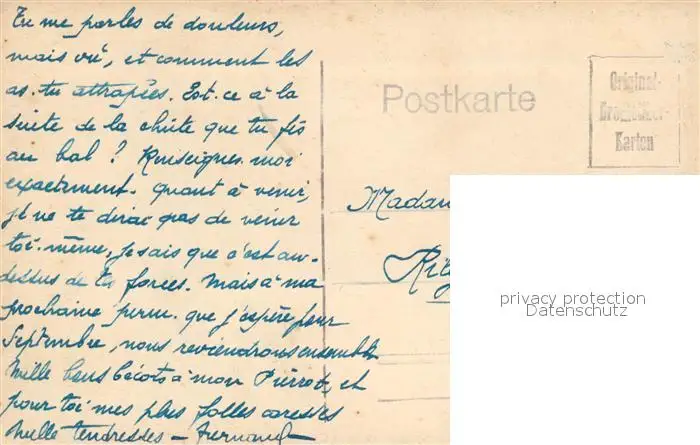 Tu me parles de douleurs,
mais où, et comment les
as-tu attrapées. Est-ce à la
suite de la chûte que tu fis
au bal? Renseignes-moi
exactement. Quant à venir,
je ne te dirai pas de venir
toi-même, je sais que c'est au-
dessus de tes forces. Mais à ma
prochaine perm. que j'espère pour
Septembre, nous reviendrons ensemble
Mille bons bécots à mon Pierrot, et
pour toi mes plus folles caresses
Mille tendresses - Fernand
Postkarte
Original-
Karton
Madam
privacy protection
Datenschutz